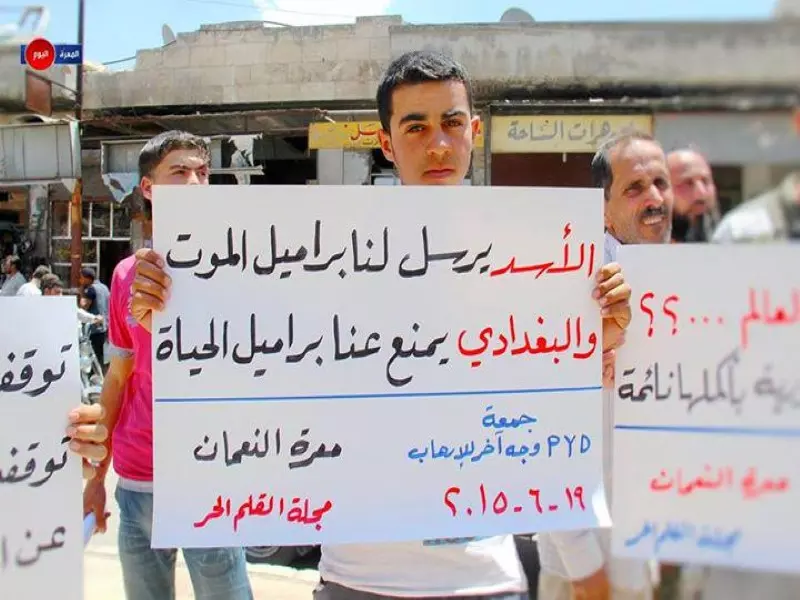 المعرة
اليوم
مجوهرات الشاحة
الأسد يرسل لنا براميل الموت
والبغدادي يمنع عنا براميل الحياة
جمعة
PYD وجه آخر للإرهاب
١٩-٦-٢٠١٥
معرة النعمان
مجلة القلم الحر
توقف
توقف
عن
العالم ...؟؟
بأكملها نائمة
معرة النعمان
مجلة القلم الحر